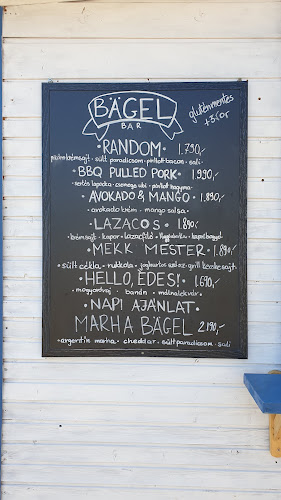 BÄGEL
BAR
gluténmentes
+3.-ór
• RANDOM • 1.790,-
krémsajt • sült paradicsom • pirított bacon • sali
• BBQ PULLED PORK • 1.990,-
• sertés lapocka • csemege ubi • pirított hagyma
• AVOKADO & MANGO • 1.890,-
avokado krém • mango salsa
• LAZACOS • 1.890,-
krémsajt • kapor • lazacfilé • kapribogyó
• MEKK MESTER • 1.890,-
• sült cékla • rukkola • joghurtos öntet • grill kecskesajt
• HELLO, ÉDES! • 1.690,-
• mogyoróvaj • banán • málnalekvár •
• NAPI AJÁNLAT •
MARHA BÄGEL 2.190,-
• argentin marha • cheddar • sült paradicsom • sali